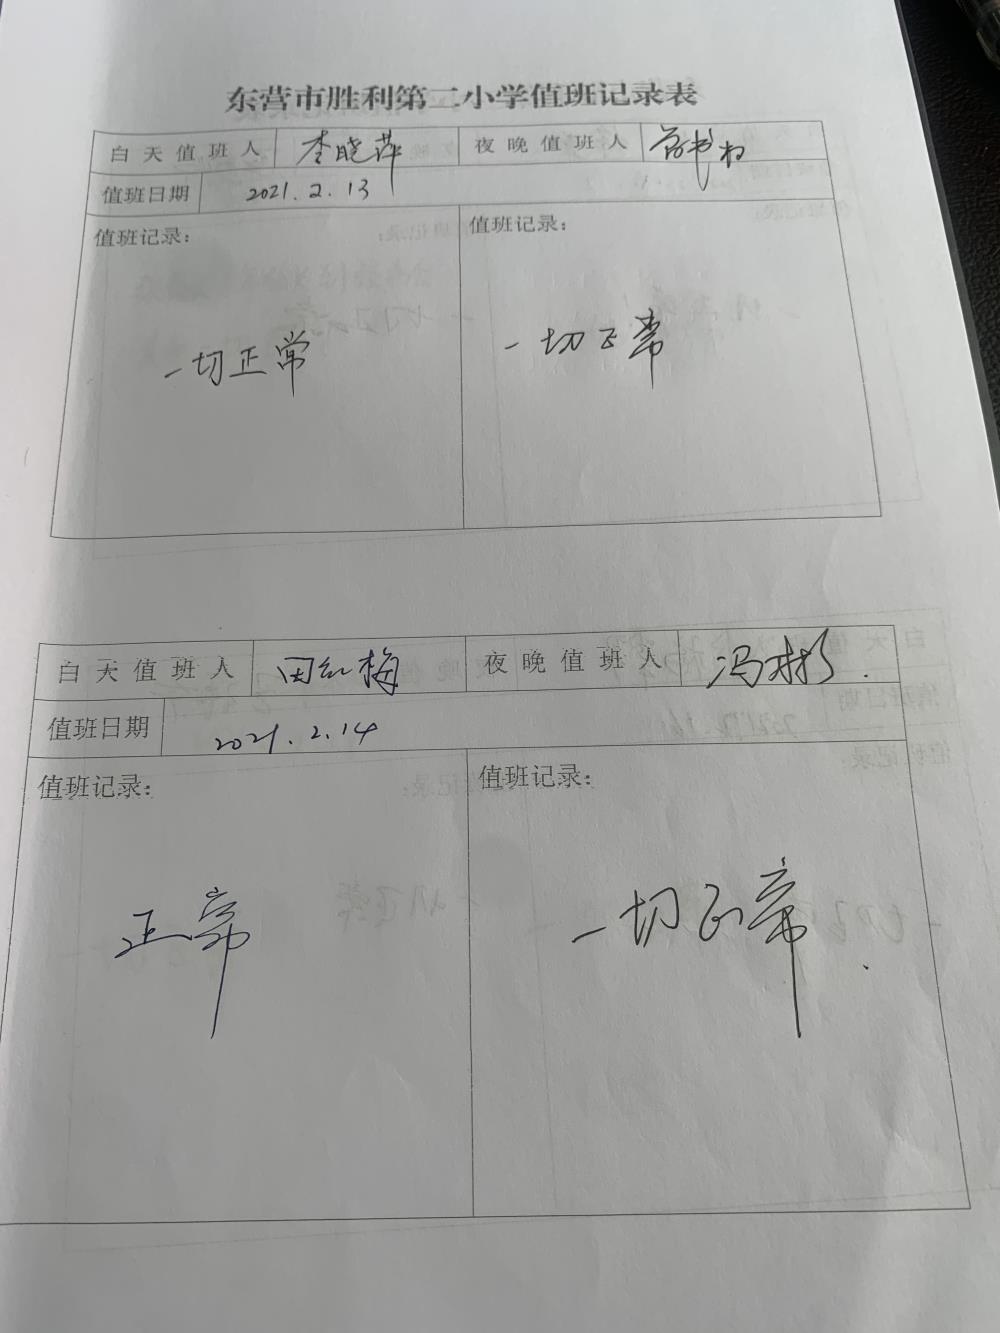 东营市胜利第二小学值班记录表
白天值班人 李晓萍 夜晚值班人
值班日期 2021.2.13
值班记录: 值班记录:
一切正常 一切正常
白天值班人 田红梅 夜晚值班人 冯
值班日期 2021.2.14
值班记录: 值班记录:
正常 一切正常